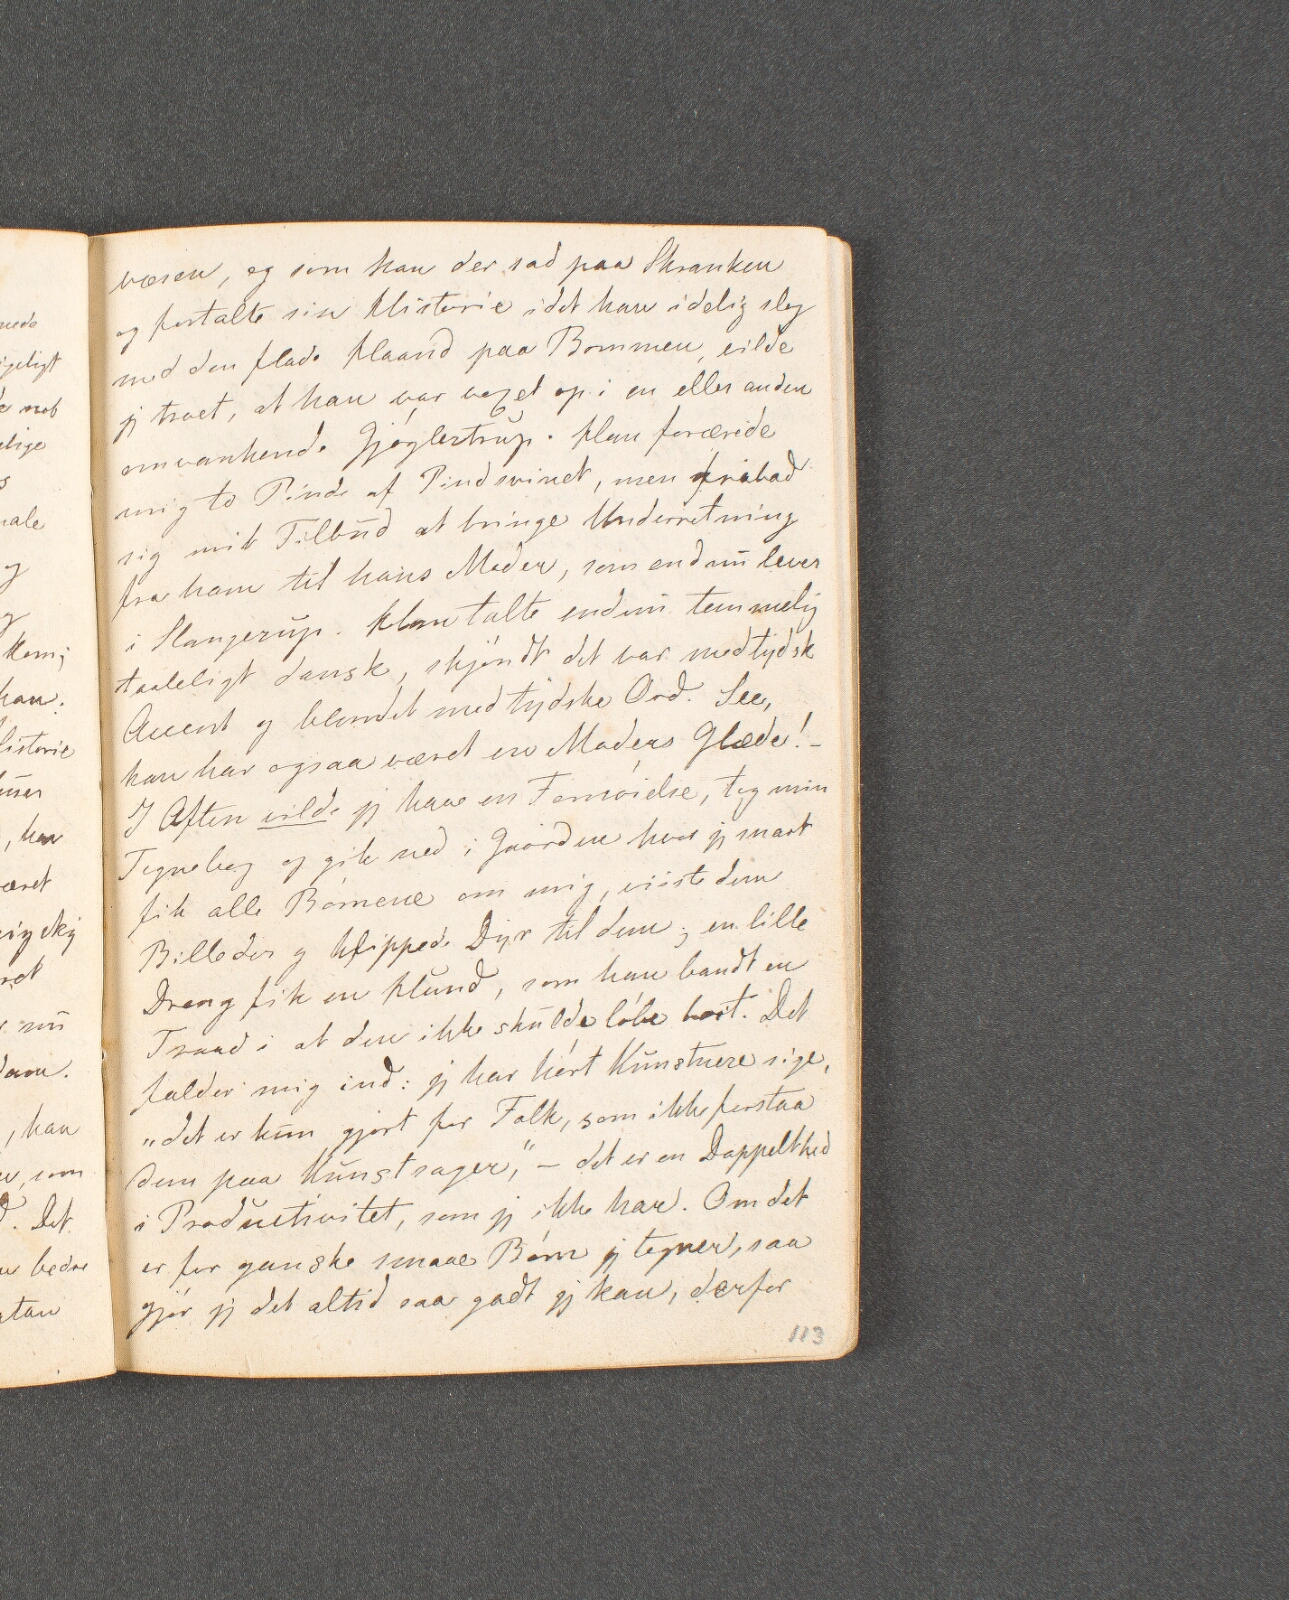 væsen, og som han der sad paa Skranken
og fortalte sin Historie idet han idelig slog
med den flade Haand paa Bommen, vilde
jeg troet, at han var voxet op i en eller anden
omvankende Gjøglertrup. Han forærede
mig to Pinde af Pindsvinet, men frabad
sig mit Tilbud at bringe Underretning
fra ham til hans Moder, som endnu lever
i Slangerup. Han talte endnu temmelig
taaleligt dansk, skjøndt det var med tydsk
Accent og blandet med tydske Ord. See,
han har ogsaa været en Moders Glæde! –
I Aften vilde jeg have en Fornøielse, tog min
Tegnebog og gik ned i Gaarden hvor jeg snart
fik alle Børnene om mig, viiste dem
Billeder og klippede Dyr til dem; en lille
Dreng fik en Hund, som han bandt en
Traad i at den ikke skulde løbe bort. Det
falder mig ind: jeg har hørt Kunstnere sige,
„det er kun gjort for Folk, som ikke forstaa
dem paa Kunstsager,“ – det er en Doppelthed
i Productivitet, som jeg ikke har. Om det
er for ganske smaae Børn jeg tegner, saa
gjør jeg det altid saa godt jeg kan, derfor
113